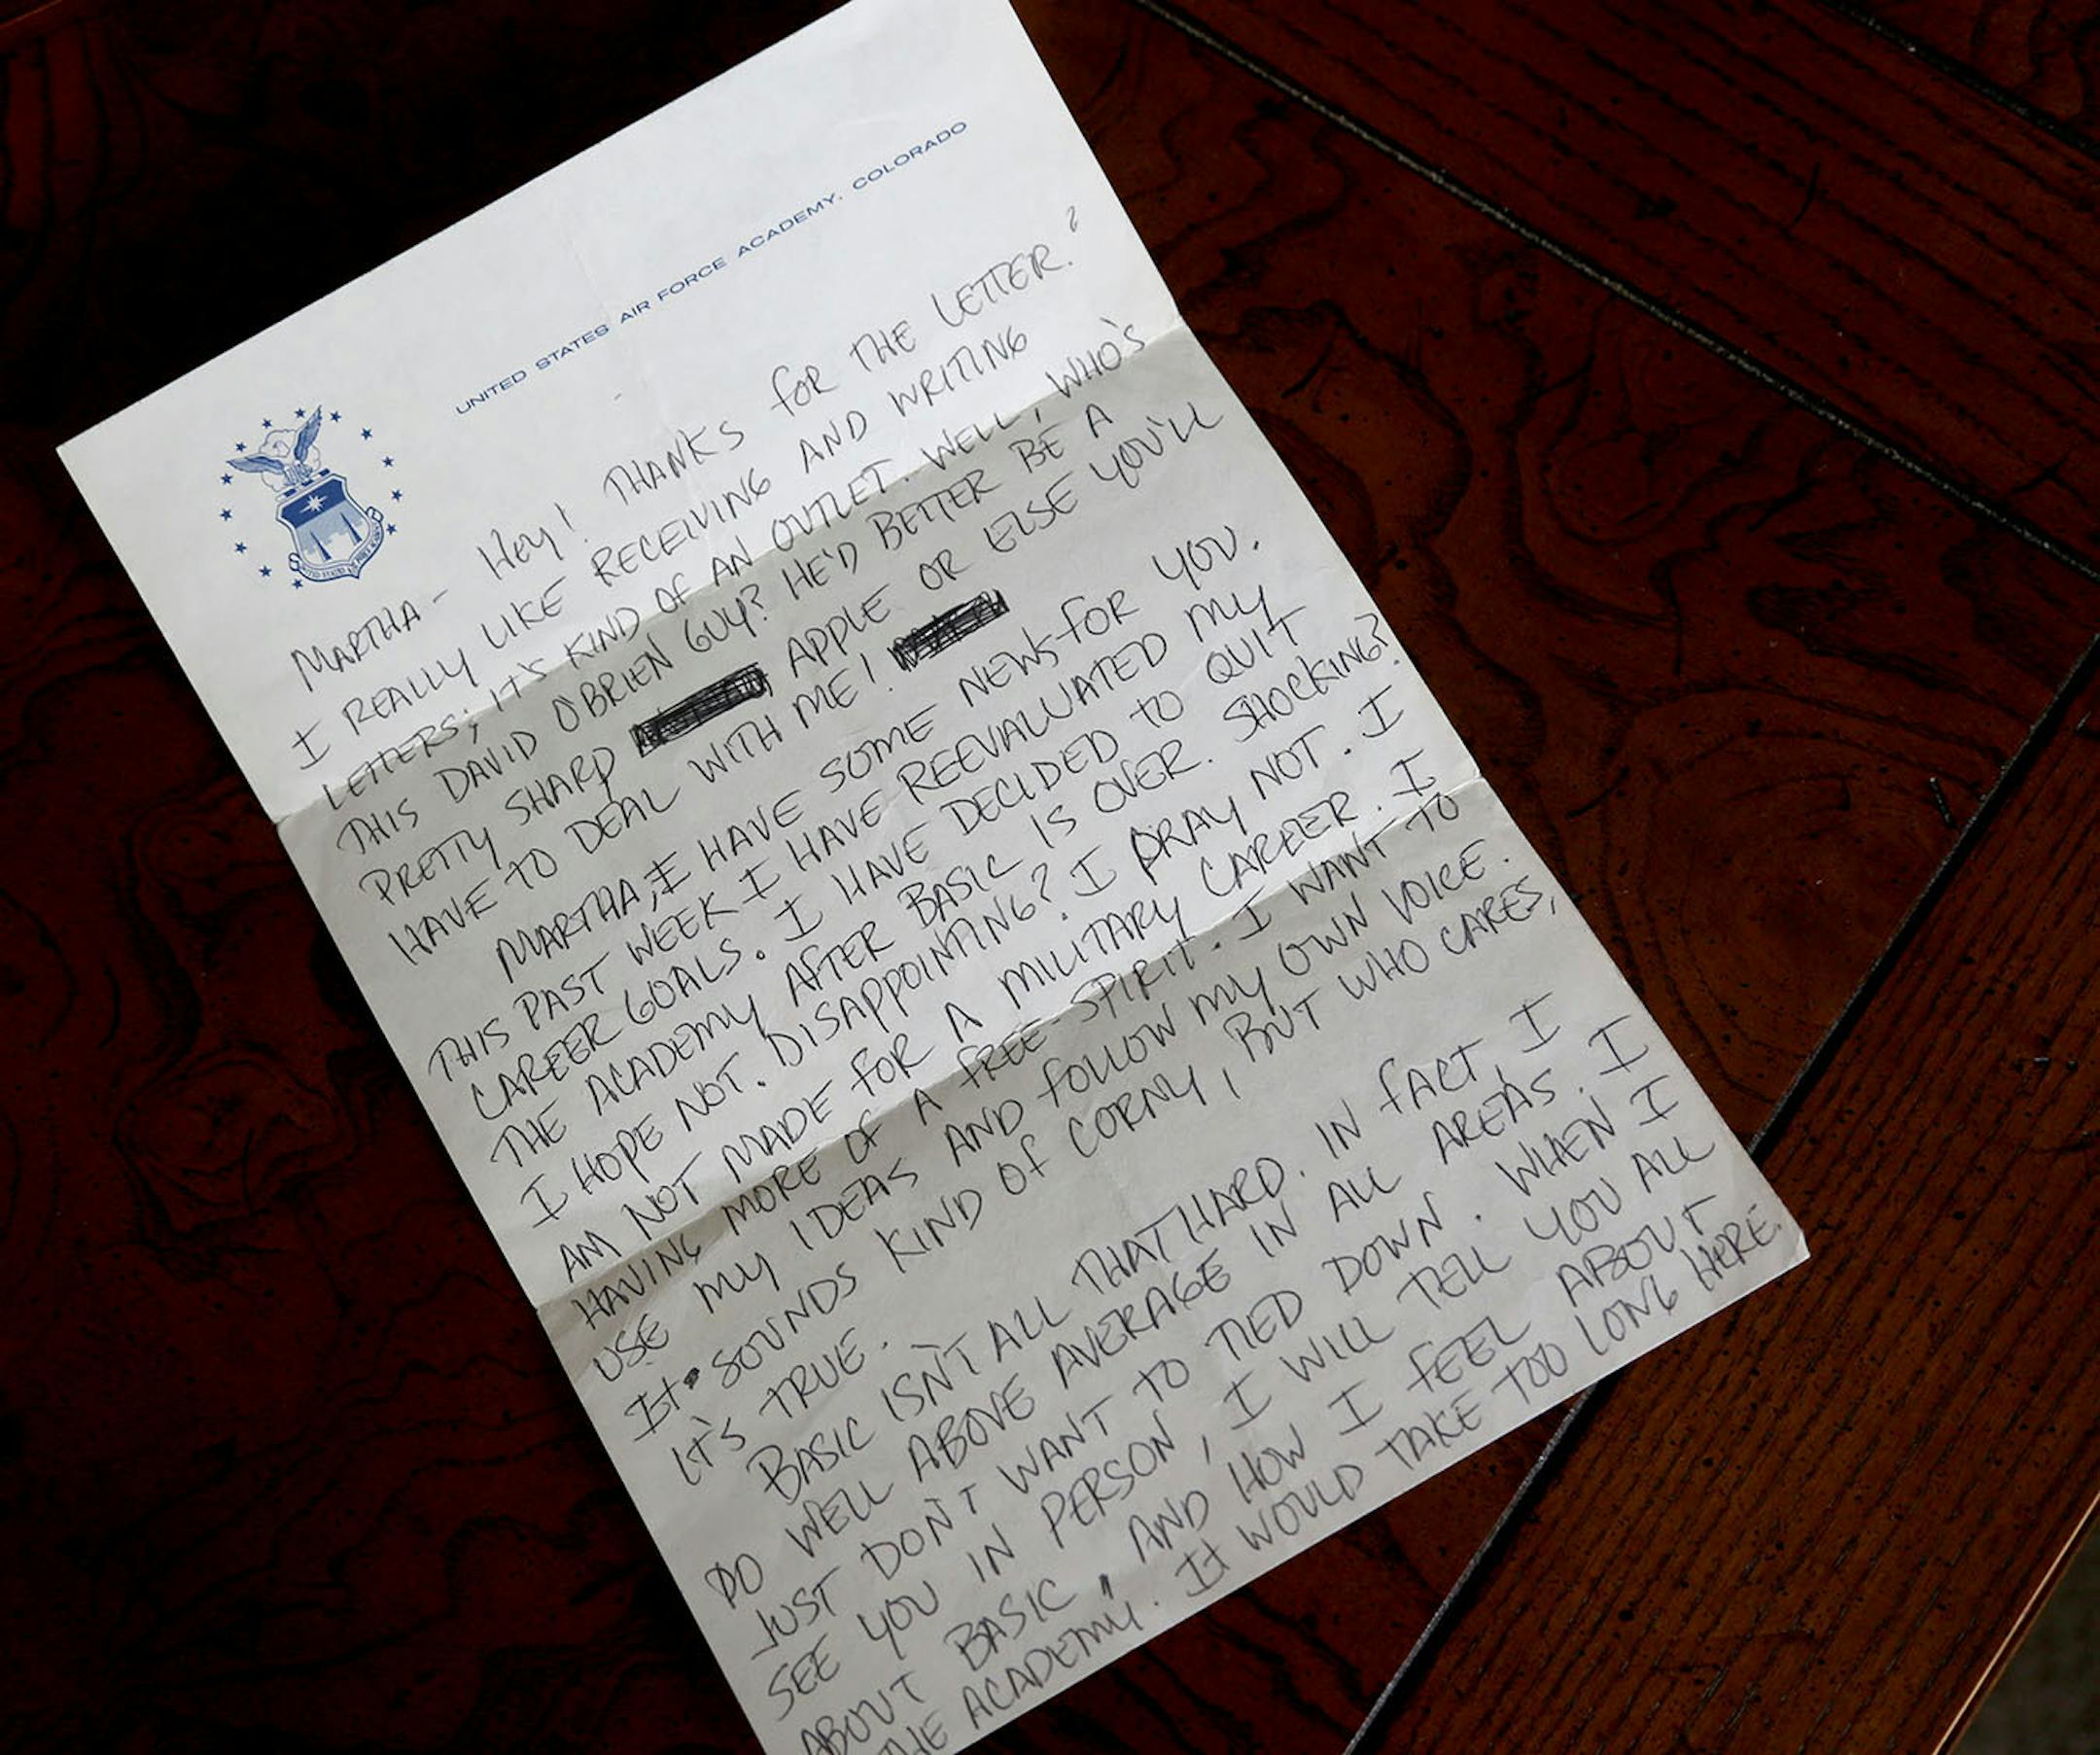 UNITED STATES AIR FORCE ACADEMY, COLORADO
MARTHA - Hey! THANKS FOR THE LETTER.
I REALLY LIKE RECEIVING AND WRITING
LETTERS; IT'S KIND OF AN OUTLET. WELL, WHO'S
THIS DAVID O'BRIEN GUY? HE'D BETTER BE A
PRETTY SHARP APPLE OR ELSE YOU'LL
HAVE TO DEAL WITH ME!
MARTHA, I HAVE SOME NEWS FOR YOU.
THIS PAST WEEK I HAVE REEVALUATED MY
CAREER GOALS. I HAVE DECIDED TO QUIT
THE ACADEMY AFTER BASIC IS OVER. SHOCKING?
I HOPE NOT. DISAPPOINTING? I PRAY NOT. I
AM NOT MADE FOR A MILITARY CAREER. I
HAVING MORE OF A FREE-SPIRIT. I WANT TO
USE MY IDEAS AND FOLLOW MY OWN VOICE.
It SOUNDS KIND OF CORNY, BUT WHO CARES,
IT'S TRUE.
BASIC ISN'T ALL THAT HARD. IN FACT, I
DO WELL ABOVE AVERAGE IN ALL AREAS. I
JUST DON'T WANT TO TIED DOWN. WHEN I
SEE YOU IN PERSON, I WILL TELL YOU ALL
ABOUT BASIC, AND HOW I FEEL ABOUT
THE ACADEMY. It WOULD TAKE TOO LONG HERE.